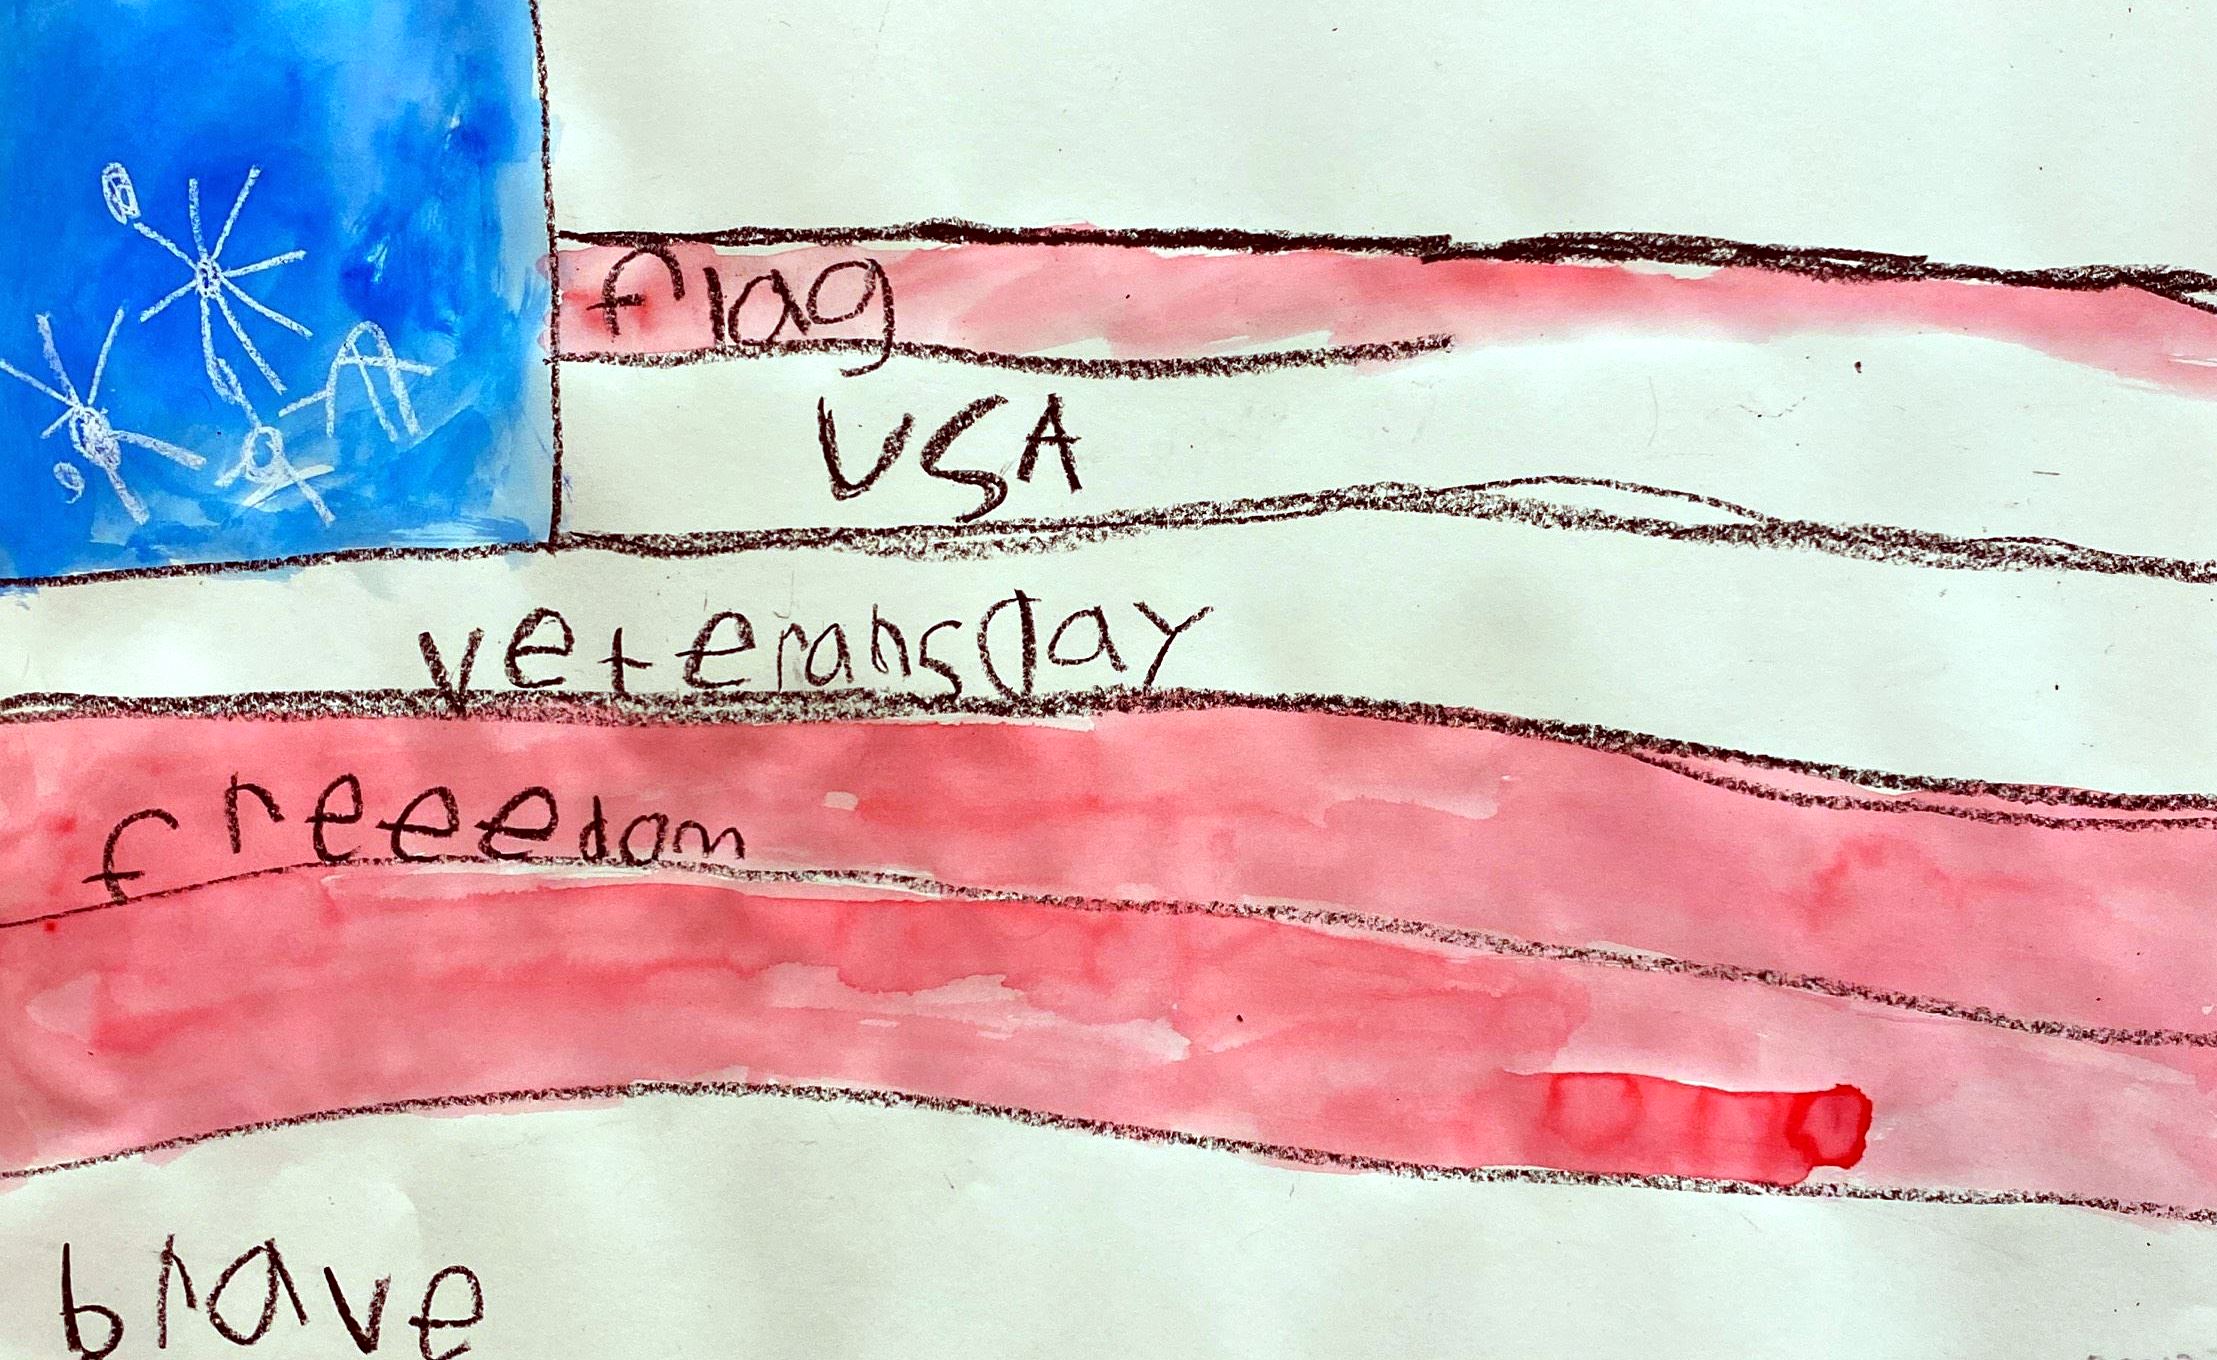 flag
USA
veteransday
freeedom
brave